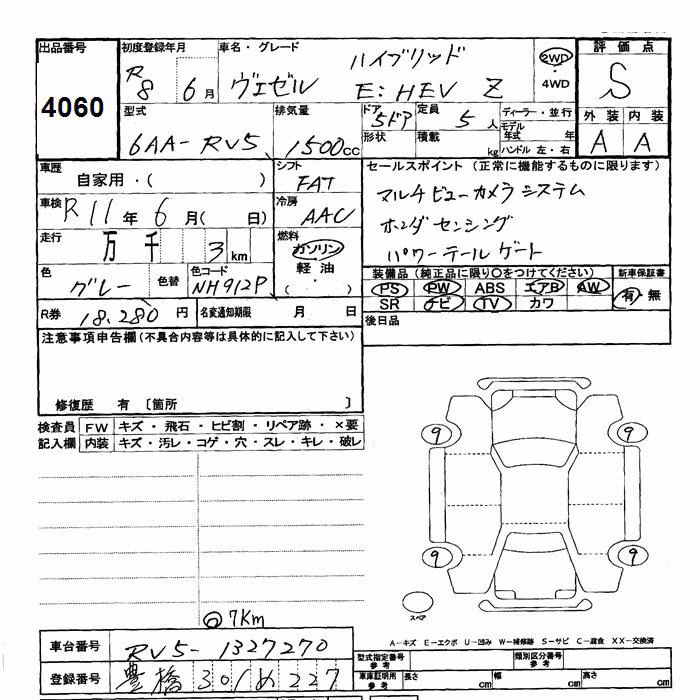 出品番号
4060
初度登録年月
R8 6月
車名・グレード
ハイブリッド
ヴェゼル E:HEV Z
2WD
・
4WD
評価点
S
外装 内装
A A
型式
6AA-RV5
排気量
1500cc
ドア
5ドア
形状
定員
5人
積載
kg
ディーラー・並行
モデル年式 年
ハンドル 左・右
車歴
自家用・( )
車検
R11年6月( 日)
走行
万 千 3km
色
グレー
色替
色コード
NH912P
シフト
FAT
冷房
AAC
燃料
ガソリン
軽油
( ・ )
セールスポイント(正常に機能するものに限ります)
マルチビューカメラシステム
ホンダセンシング
パワーテールゲート
装備品(純正品に限り〇をつけてください)
PS PW ABS エアB AW
SR ナビ TV カワ
新車保証書
有・無
R券 18,280円
名変通知期限 月 日
後日品
注意事項申告欄(不具合内容等は具体的に記入して下さい)
修復歴 有 〔箇所 〕
検査員
記入欄
FW キズ・飛石・ヒビ割・リペア跡・×要
内装 キズ・汚レ・コゲ・穴・スレ・キレ・破レ
9 9
9 9
スペア
◎7Km
A-キズ E-エクボ U-凹み W-補修跡 S-サビ C-腐食 XX-交換済
車台番号
RV5-1327270
登録番号
豊橋 301 め 227
型式指定番号
参考
類別区分番号
参考
車庫証明用
参考
長さ cm
幅 cm
高さ cm